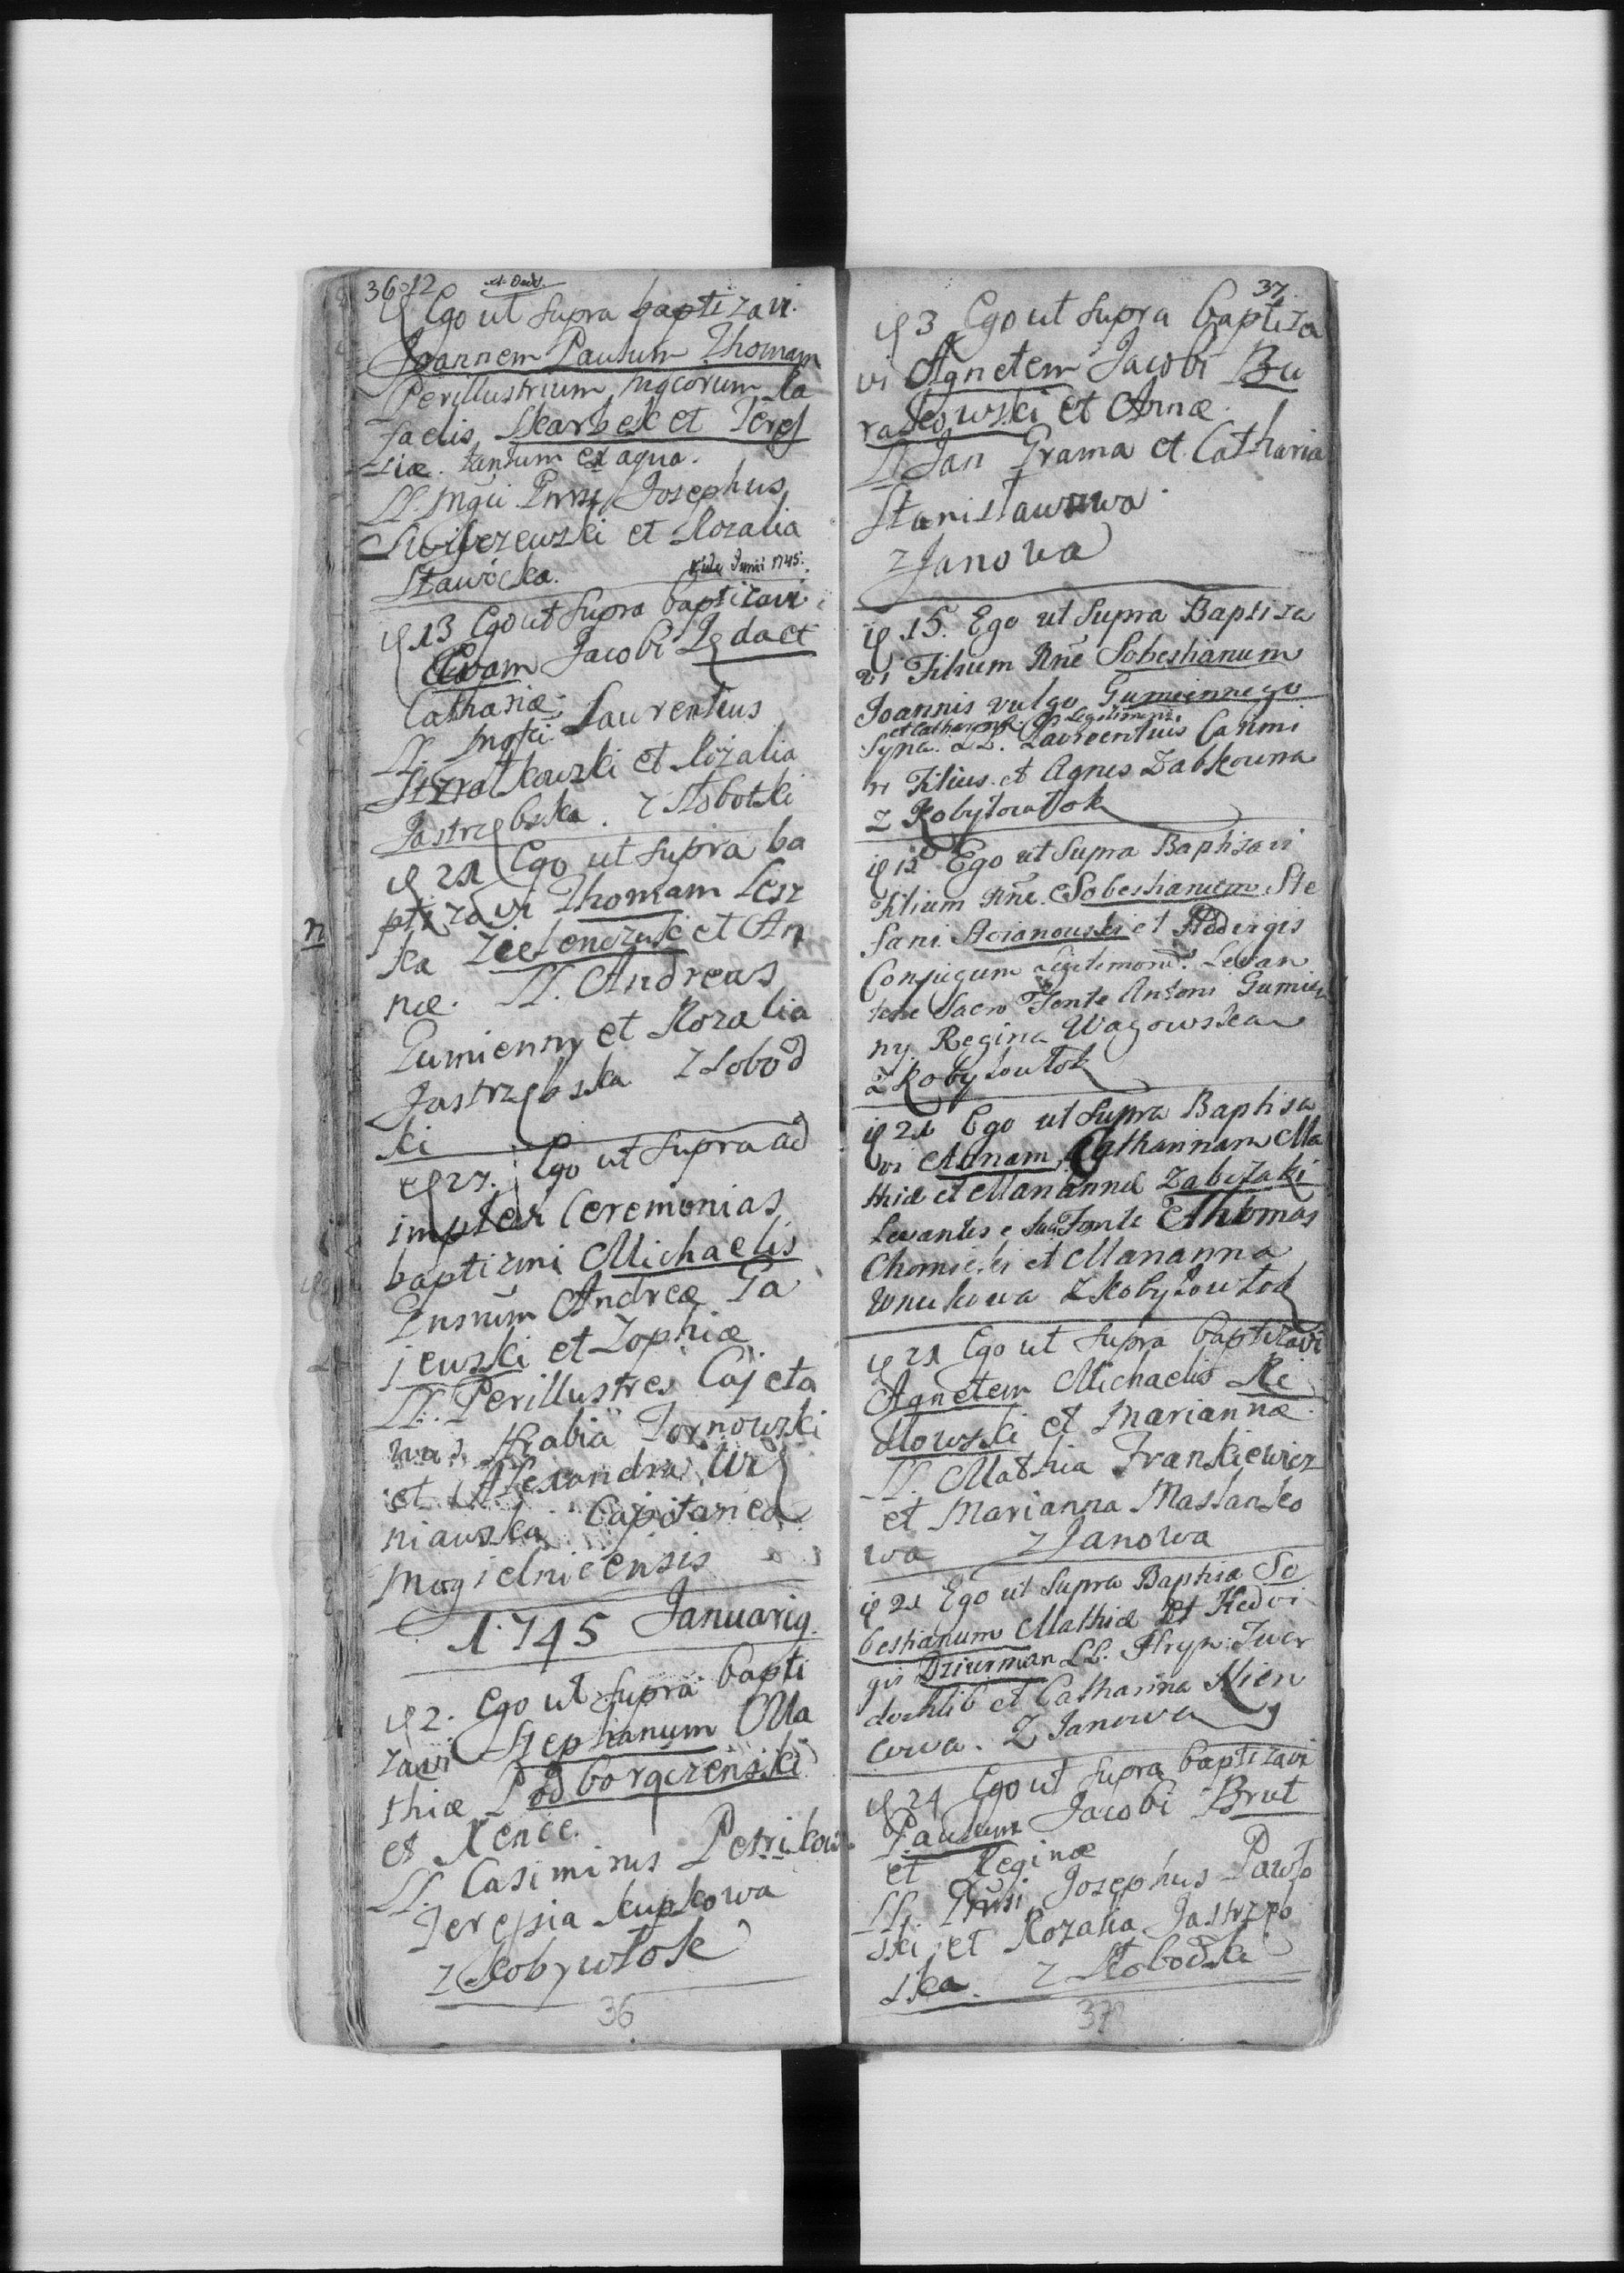 36 12
Ego ut supra baptizavi
Joannem Paulum Thomam
Perillustrium Mgcorum Ra
faelis Skarbek et Teres
siæ. tantum ex aqua.
LL. Mgci Josephus
et Rozalia
Stawicka.
vide Junii 1745.
13 Ego ut supra baptizavi
Evam Jacobi et
Catharinæ
LL. Laurentius
et Rozalia
Jastrzębska. z Słobotki
21 Ego ut supra ba
ptizavi Thomam Lesz
n
ka Zielenczuk et An
næ. LL. Andreas
Gumienny et Rozalia
Jastrzębska z Słobod
ki
27. Ego ut supra ad
implevi Ceremonias
baptizmi Michaelis
Andreæ Ga
jewski et Zophiæ
LL. Perillustres Cajeta
nus Hrabia Tornowski
et Alexandra Urz
niawska Capitanea
Mogielnicensis
1745 Januarij.
2. Ego ut supra bapti
zavi Stephanum Ma
thiæ Podborączenski
et Xencę.
LL. Casimirus Petrikow
Teressia Kupkowa
z Kobywłok
36
37
3 Ego ut supra baptiza
vi Agnetem Jacobi Bu
rakowski et Annæ.
LL. Jan Grama et Catharia
Stanisławowa
z Janowa
15. Ego ut Supra Baptiza
vi Filium Rne Sobestianum
Joannis vulgo Gumiennego
et Catharinæ Legitimorum
Syna. LL. Laurentius Casimi
ri Filius et Agnes Zabkowna
z Kobyłowłok
15 Ego ut Supra Baptizavi
Filium Rne Sobestianum Ste
fani Acianouski et Hedvigis
Conjugum Legitimorum Levan
tese Sacro Fonte Antoni Gumien
ny. Regina Wagowska
z Kobyłowłok
21 Ego ut Supra Baptisa
vi Annam, Catharinam Ma
thiæ et Mariannæ Zabczaki
Levantes e Sacro Fonte Thomas
Chomicki et Marianna
Wnukowa z Kobyłowłok
21 Ego ut supra baptizavi
Agnetem Michaelis Ki
dlowski et Mariannæ.
LL. Mathia Frankiewicz
et Marianna Maslanko
wa z Janowa
21 Ego ut Supra Baptiza Se
bestianum Mathiæ et Hedvi
gis Dziurman LL. Hryn: Twer
dochlib et Catharina Kien
cowa. Z Janowa
24 Ego ut supra baptizavi
Paulum Jacobi Brut
et Reginæ
LL. Josephus Pawło
ski et Rozalia Jastrzęb
ska. z Słobodki
37